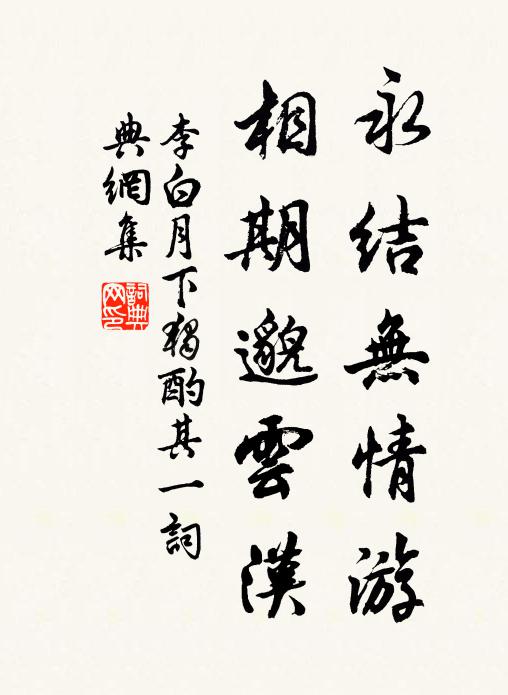 永结無情游
相期邈雲漢
李白月下獨酌其一詞
典網集
詞典
网印